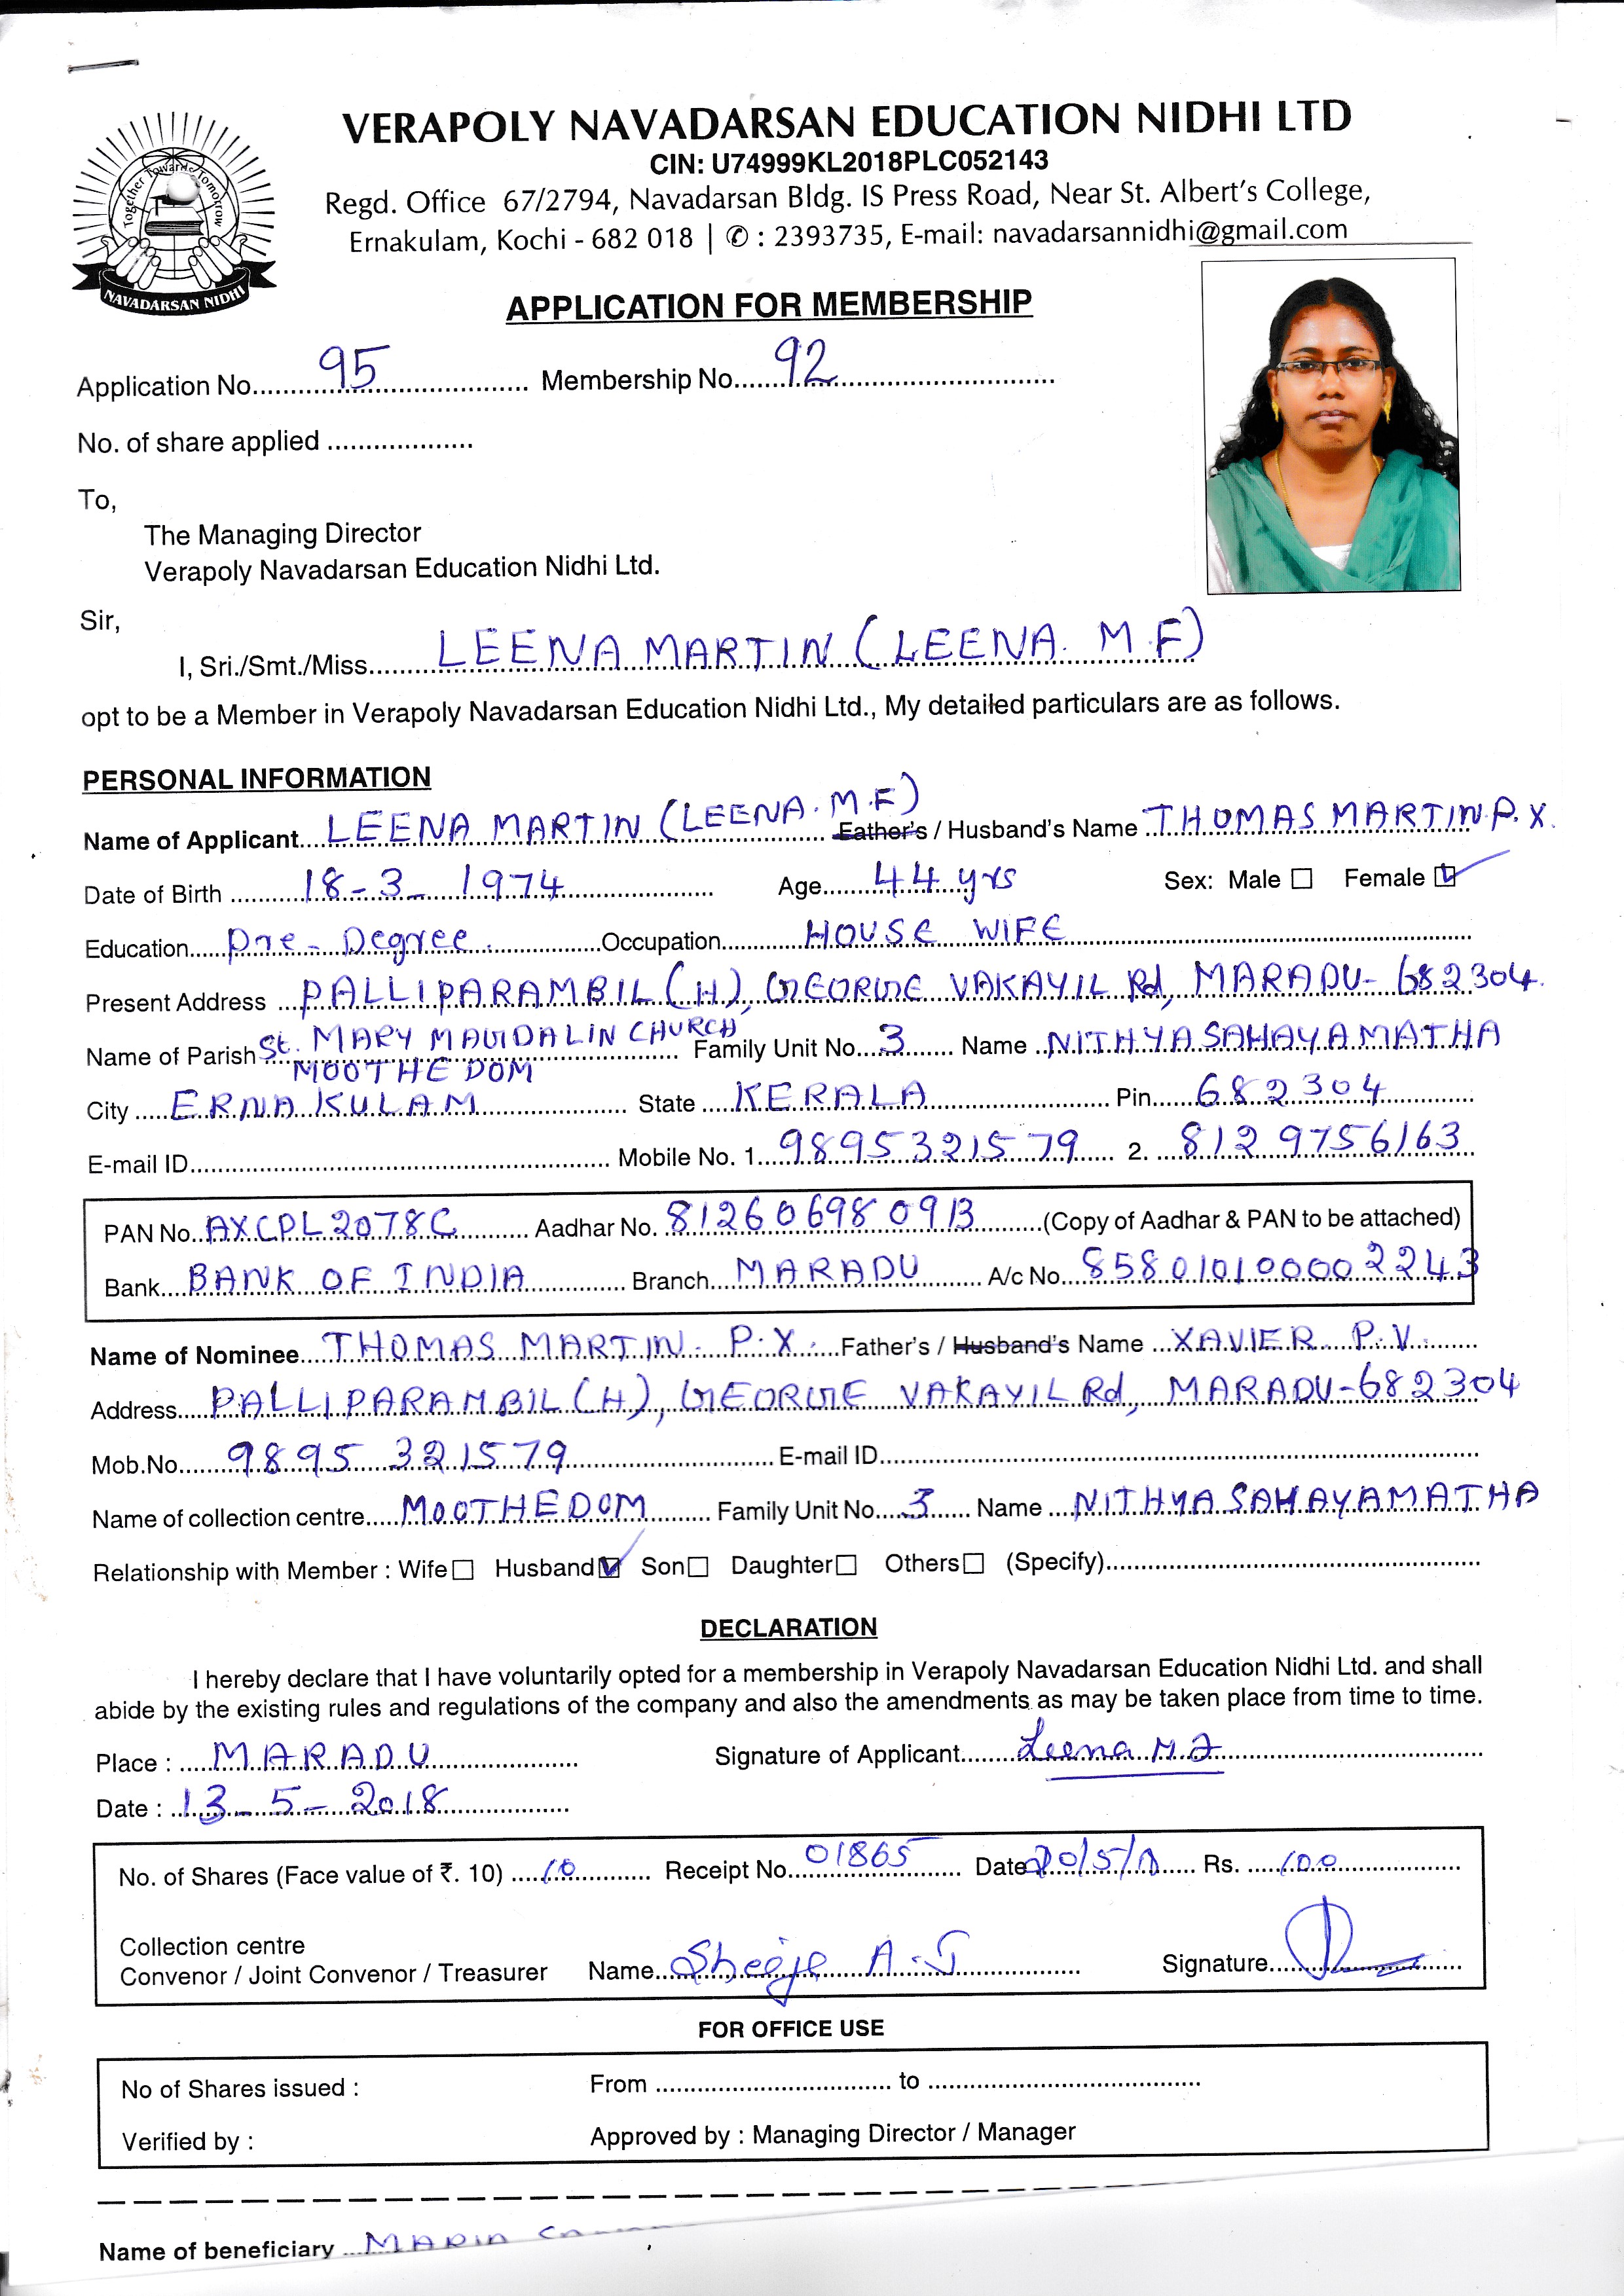 VERAPOLY NAVADARSAN EDUCATION NIDHI LTD
CIN: U74999KL2018PLC052143
Regd. Office 67/2794, Navadarsan Bldg. IS Press Road, Near St. Albert's College,
Ernakulam, Kochi - 682 018 | ✆ : 2393735, E-mail: navadarsannidhi@gmail.com
Together Towards Tomorrow
NAVADARSAN NIDHI
APPLICATION FOR MEMBERSHIP
Application No. 95 Membership No. 92
No. of share applied
To,
The Managing Director
Verapoly Navadarsan Education Nidhi Ltd.
Sir,
I, Sri./Smt./Miss. LEENA MARTIN (LEENA. M.F)
opt to be a Member in Verapoly Navadarsan Education Nidhi Ltd., My detailed particulars are as follows.
PERSONAL INFORMATION
Name of Applicant LEENA MARTIN (LEENA. M.F) Father's / Husband's Name THOMAS MARTIN.P.X.
Date of Birth 18-3-1974 Age 44 yrs Sex: Male ☐ Female ☑
Education Pre-Degree. Occupation HOUSE WIFE
Present Address PALLIPARAMBIL (H), GEORGE VAKAYIL Rd, MARADU-682304.
Name of Parish St. MARY MAGDALIN CHURCH Family Unit No. 3 Name NITHYA SAHAYAMATHA
MOOTHEDOM
City ERNAKULAM State KERALA Pin 682304
E-mail ID Mobile No. 1. 9895321579 2. 8129756163
PAN No. AXCPL2078C Aadhar No. 812606980913 (Copy of Aadhar & PAN to be attached)
Bank BANK OF INDIA Branch MARADU A/c No. 858010100002243
Name of Nominee THOMAS MARTIN. P.X. Father's / Husband's Name XAVIER P.V.
Address PALLIPARAMBIL (H), GEORGE VAKAYIL Rd, MARADU-682304
Mob.No. 9895 321579 E-mail ID
Name of collection centre MOOTHEDOM Family Unit No. 3 Name NITHYA SAHAYAMATHA
Relationship with Member : Wife ☐ Husband ☑ Son ☐ Daughter ☐ Others ☐ (Specify)
DECLARATION
I hereby declare that I have voluntarily opted for a membership in Verapoly Navadarsan Education Nidhi Ltd. and shall
abide by the existing rules and regulations of the company and also the amendments as may be taken place from time to time.
Place : MARADU Signature of Applicant Leena M F
Date : 13-5-2018
No. of Shares (Face value of ₹. 10) 10 Receipt No. 01865 Date 20/5/ Rs. 100
Collection centre
Convenor / Joint Convenor / Treasurer Name Sheeje A.J Signature
FOR OFFICE USE
No of Shares issued : From to
Verified by : Approved by : Managing Director / Manager
Name of beneficiary MARIA